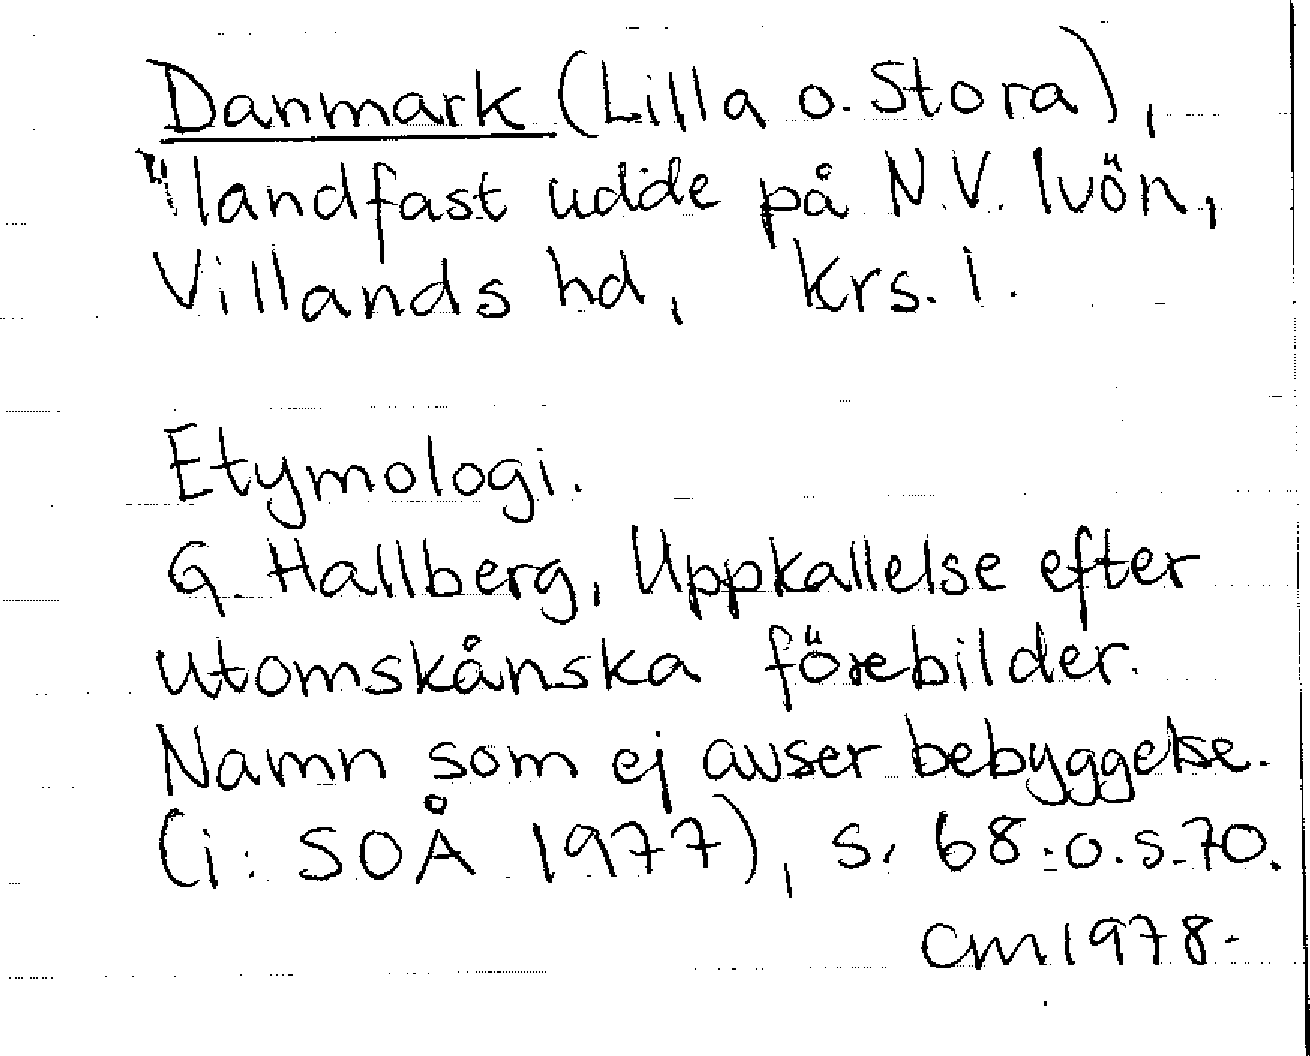 Danmark (Lilla o. Stora),
"landfast udde på N.V. Ivön,
Villands hd, Krs. l.
Etymologi.
G. Hallberg, Uppkallelse efter
utomskånska förebilder.
Namn som ej avser bebyggelse.
(i: SOÅ 1977), s. 68 o. s. 70.
CM 1978.